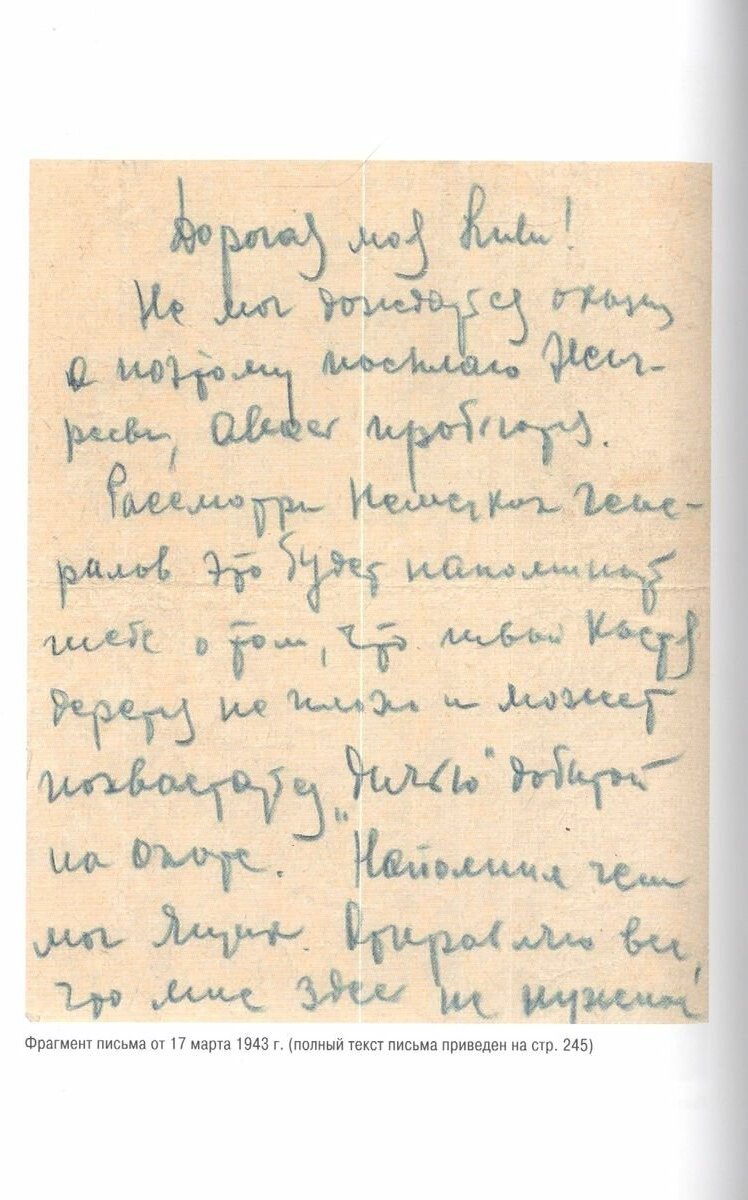 Дорогая моя Люлю!
Не мог дождаться оказии
а поэтому посылаю
авось пробьются.
Рассмотри Немецких Гене-
ралов это будет напоминать
тебе о том, что твой Костя
дерется не плохо и может
похвастаться „дичью“ добытой
на охоте. Наполнил чем
мог ящик. Отправляю все,
что мне здесь не
Фрагмент письма от 17 марта 1943 г. (полный текст письма приведен на стр. 245)